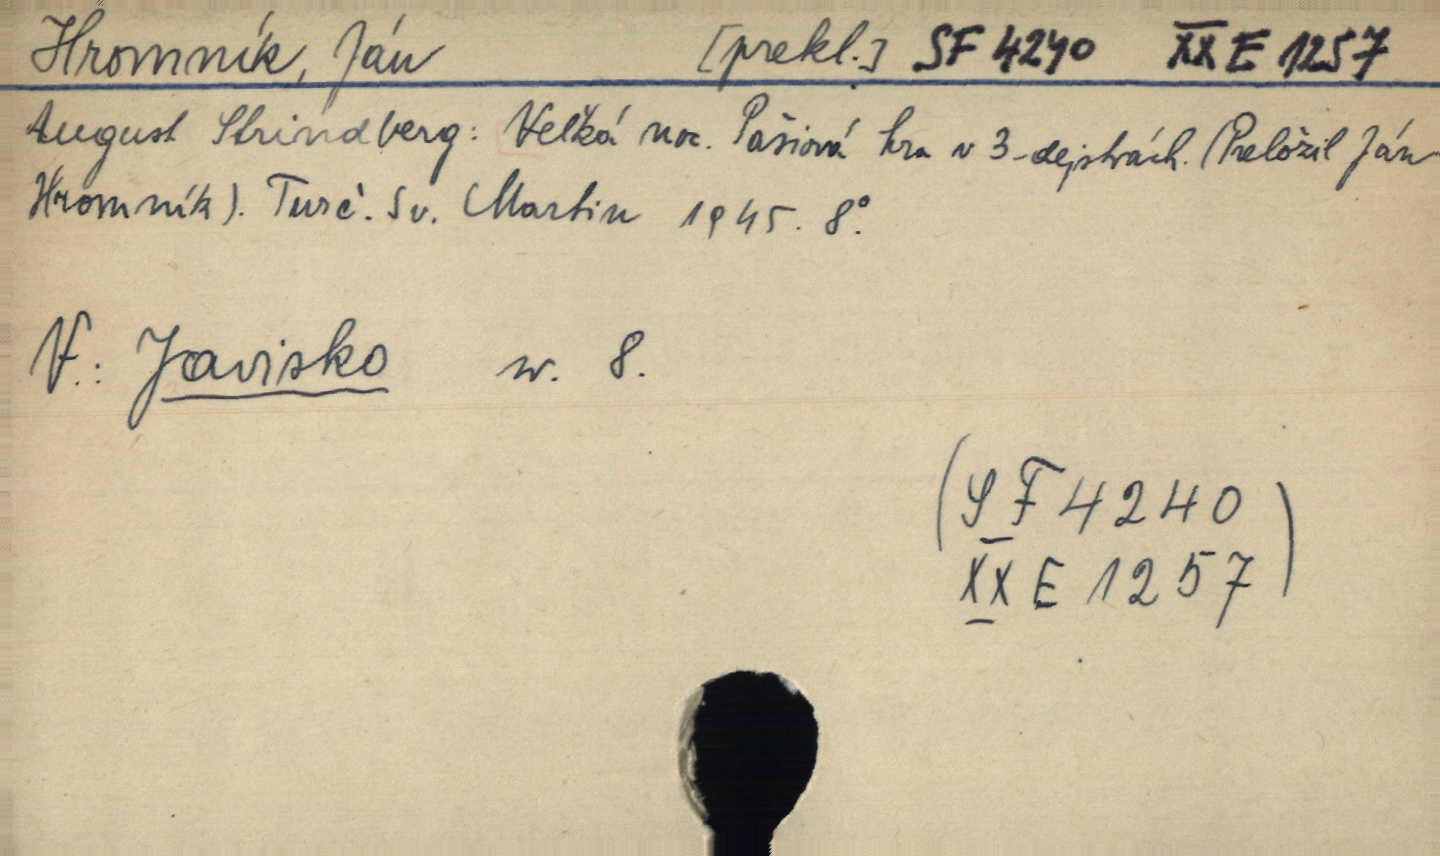 Hromník, Ján [prekl.] SF 4240 XX E 1257
August Strindberg: Veľká noc. Pašiová hra v 3-dejstvách. (Preložil Ján
Hromník). Turč. Sv. Martin 1945. 8°.
V.: Javisko sv. 8.
(SF 4240
XX E 1257)